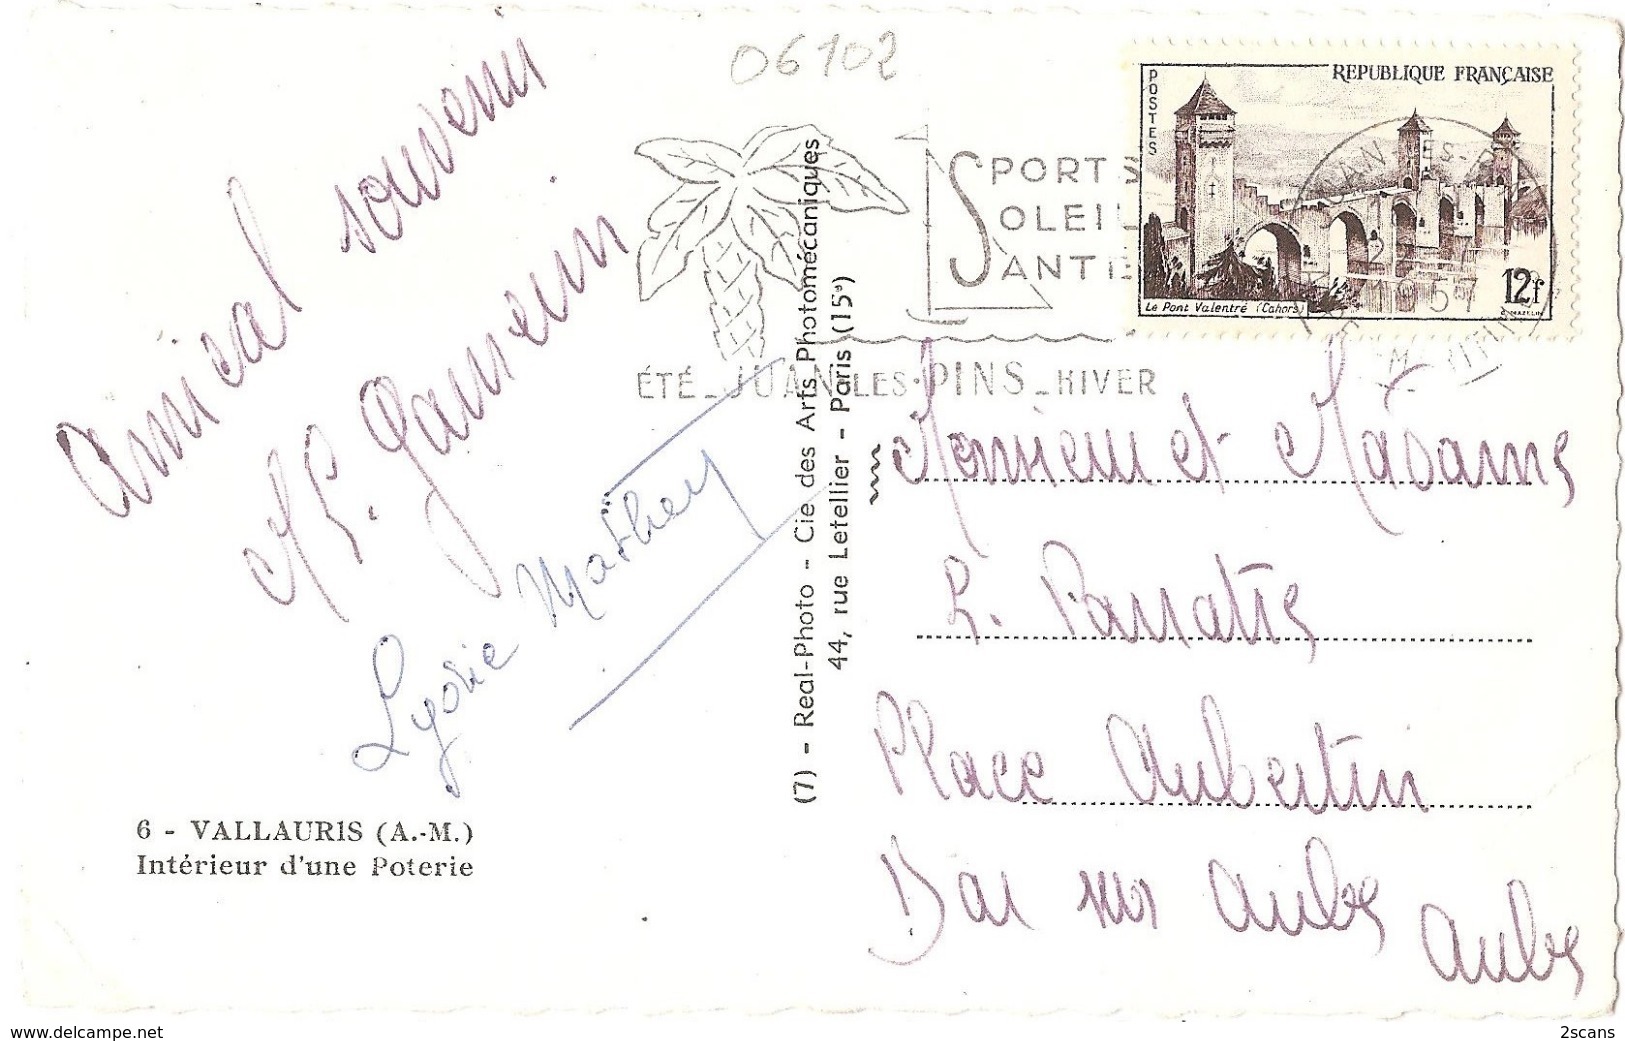 06102
Amical souvenir
Lydie Mathey
6 - VALLAURIS (A.-M.)
Intérieur d'une Poterie
(7) - Real-Photo - Cie des Arts Photomécaniques
44, rue Letellier - Paris (15e)
SPORTS
SOLEIL
SANTE
ÉTÉ - JUAN-LES-PINS - HIVER
REPUBLIQUE FRANÇAISE
POSTES
Le Pont Valentré (Cahors)
12f
C. MAZELIN
1957
Monsieur et Madame
Place Aubertin
Bar sur Aube
Aube
www.delcampe.net
2scans